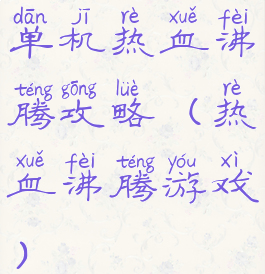 dān jī rè xuě fèi
单机热血沸
téng gōng lüè rè
腾攻略（热
xuě fèi téng yóu xì
血沸腾游戏
）